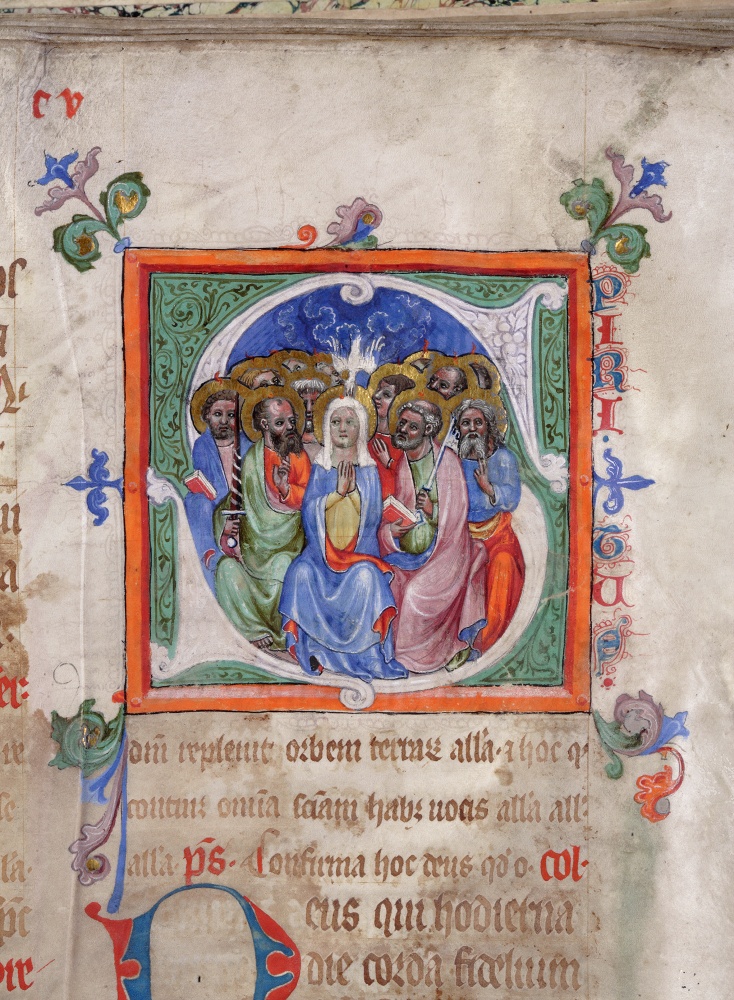 c v
S
PIRITUS
dn̄i repleuit orbem terraꝝ all'a · ⁊ hoc qͦ
continꝫ om̄ia sciām habꝫ uocis all'a all'
all'a p̄s · Confirma hoc deus qd' o · col·
Deus qui hodierna
die corda fidelium